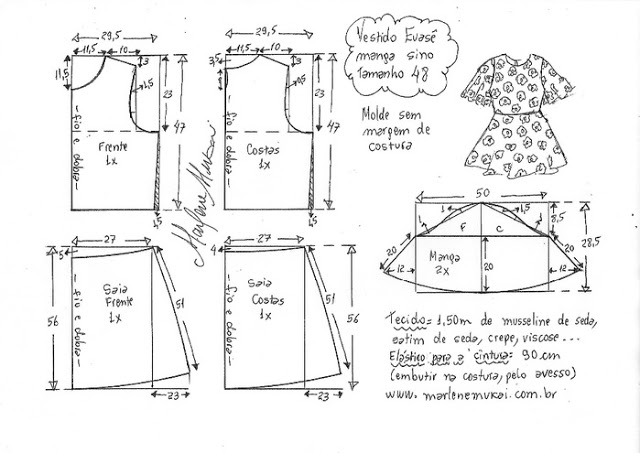 Vestido Evasê
manga sino
Tamanho 48
Molde sem
margem de
costura
29,5
11,5
10
3
11,5
1,5
23
47
fio e dobra
Frente
1x
1,5
29,5
11,5
10
3,5
3
1,5
23
47
fio e dobra
Costas
1x
1,5
Marlene Mukai
27
5
56
51
fio e dobra
Saia
Frente
1x
23
27
4
51
56
fio e dobra
Saia
Costas
1x
23
50
1
1,5
1
1
8,5
28,5
F
C
20
20
12
12
Manga
2x
20
Tecido: 1,50m de musseline de seda,
cetim de seda, crepe, viscose...
Elástico para a cintura: 90 cm
(embutir na costura, pelo avesso)
www.marlenemukai.com.br